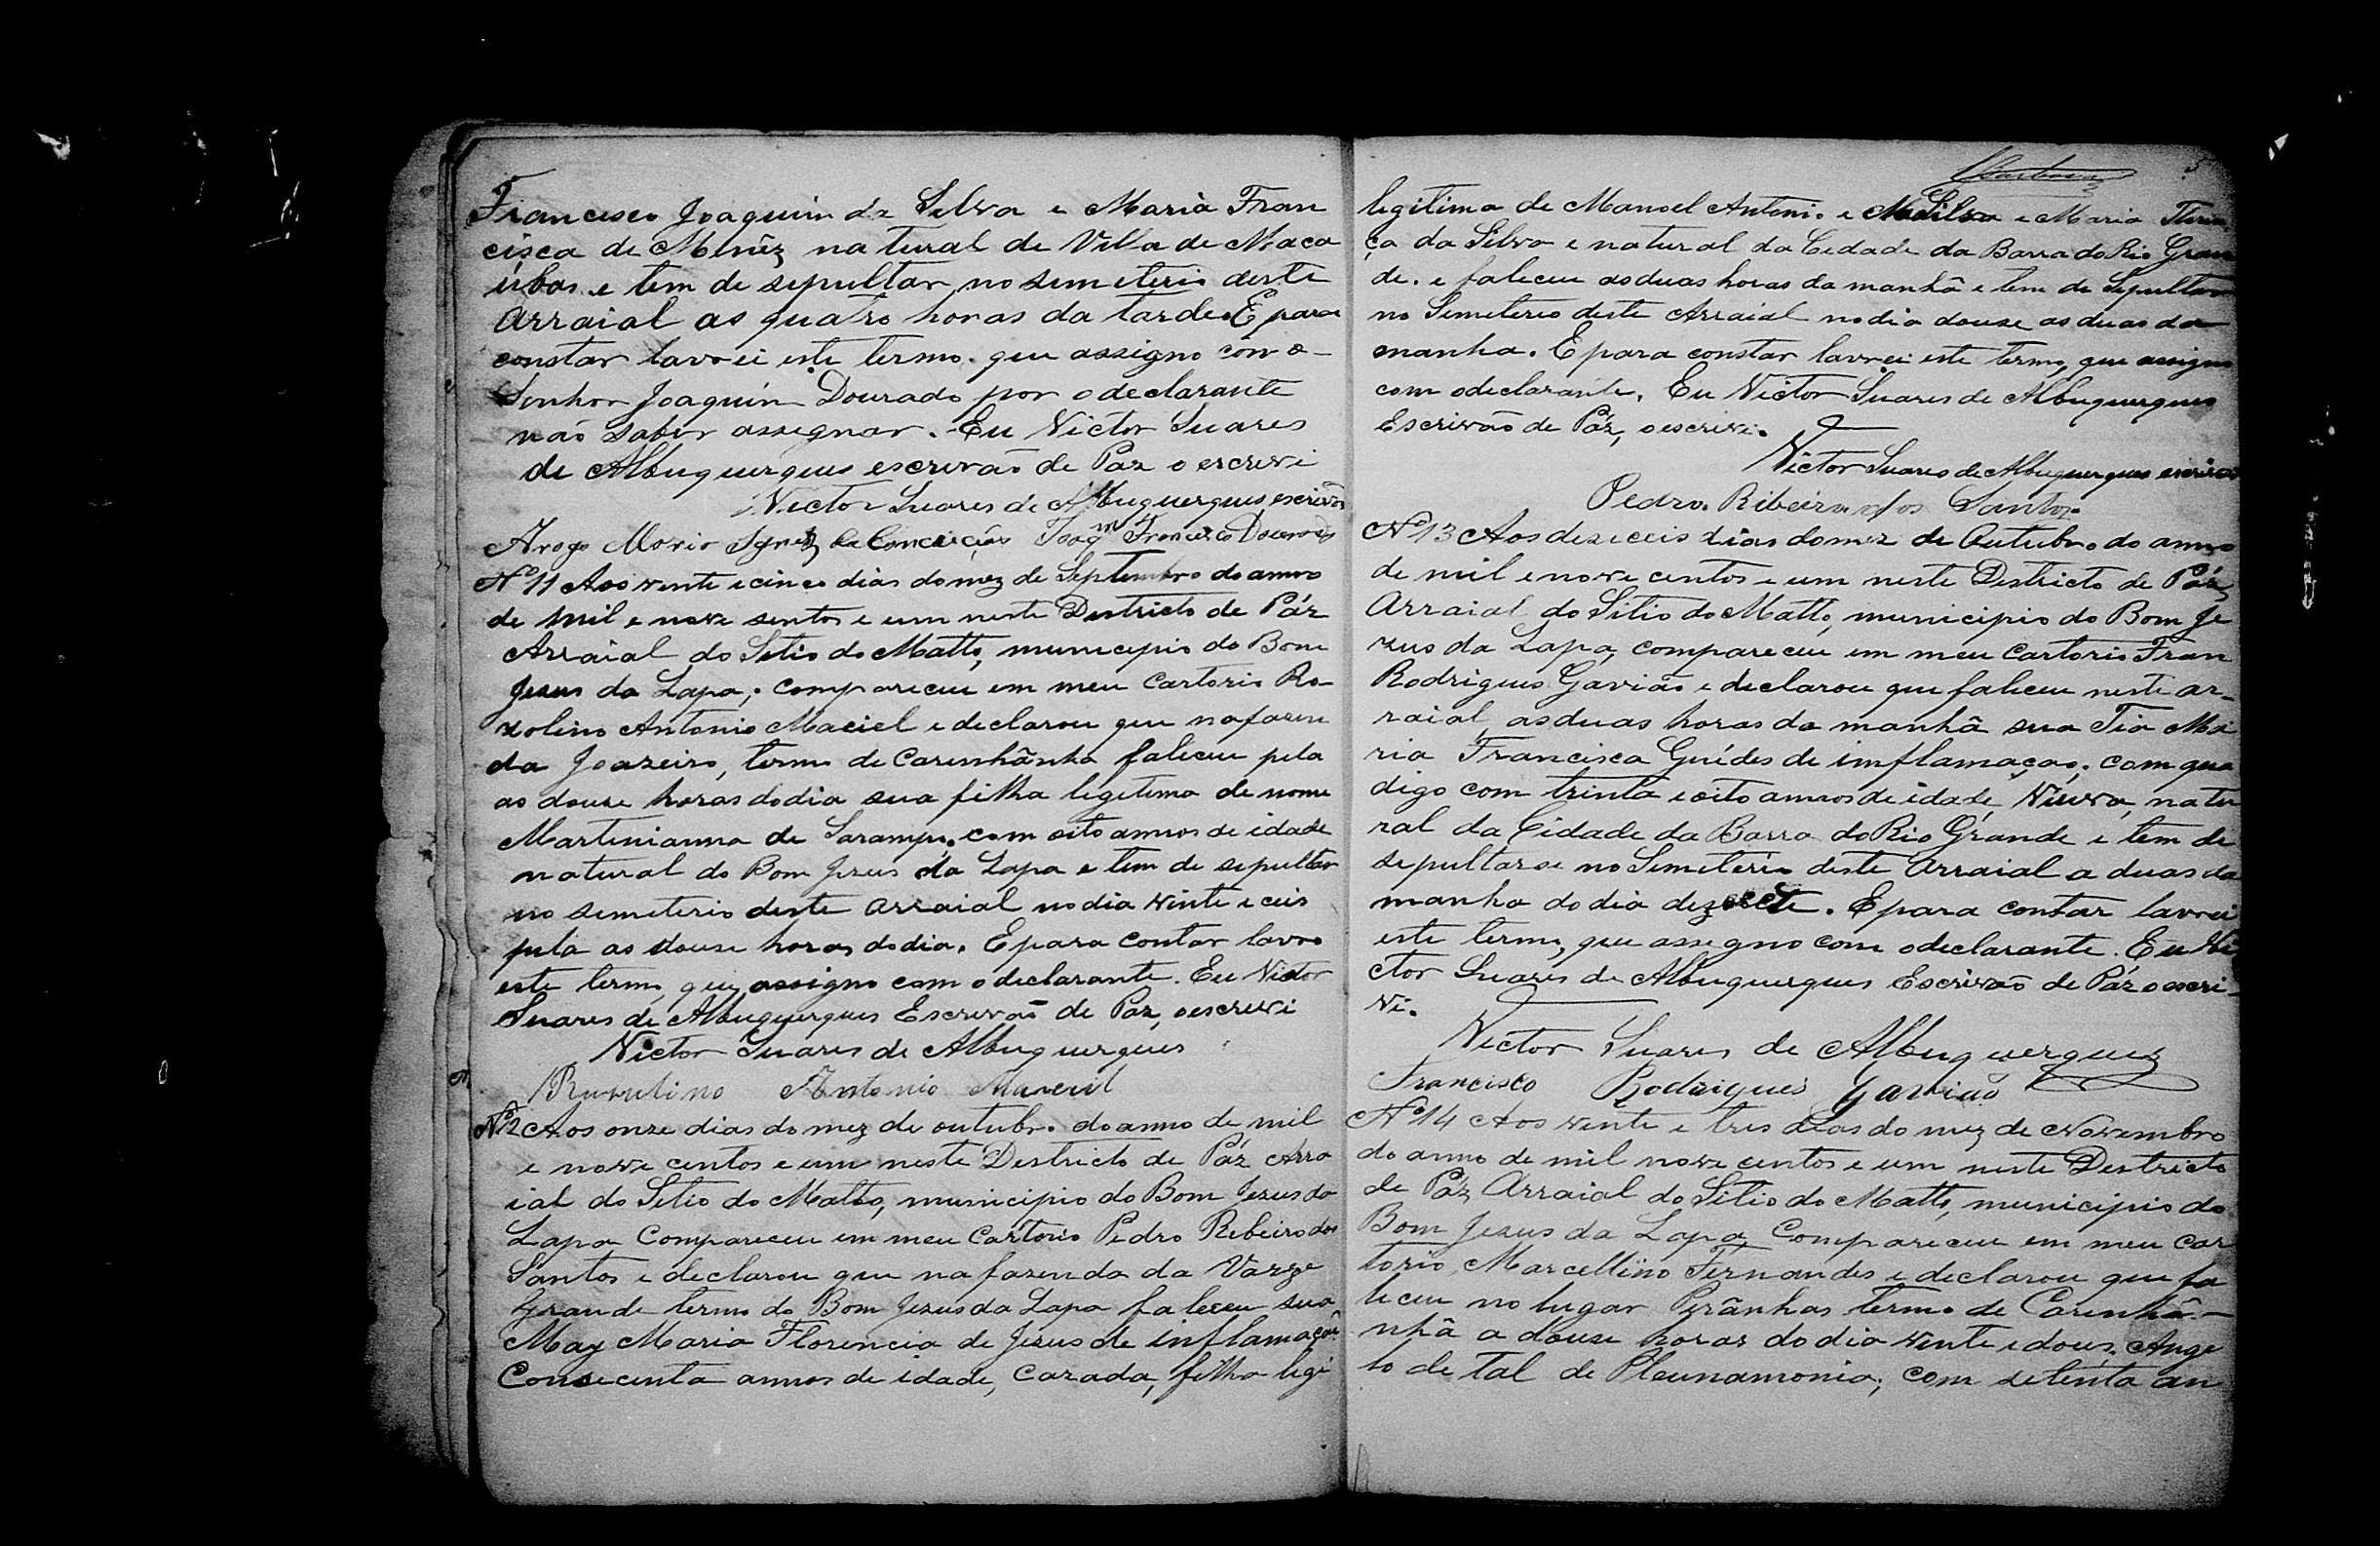 Francisco Joaquim da Silva e Maria Fran
cisca de Menêz natural de Villa de Maca
úbas e tem de sepultar no semeterio deste
Arraial as quatro horas da tarde. E para
constar lavrei este termo. que assigno com o
Senhor Joaquin Dourado por o declarante
não saber assegnar. Eu Victor Suares
de Albuquerques escrevão de Paz o escrevi
Victor Suares de Albuquerques escrivão
Arogo Maria Ignez da Conceição Joaqm Francisco Dourado
Nº 11 Aos vente e cinco dias do mez de Septembro do anno
de mil e nove sentos e um neste Destricto de Páz
Arraial do Setio do Matto, municipio do Bom
Jesus da Lapa; compareceu em meu Cartorio Ro-
zolino Antonio Maciel e declarou que na fasen
da Joazeiro, termo de Carinhãnha faleceu pela
as douze horas do dia sua filha legetima de nome
Martinianna de Sarampo. com oito annos de idade
natural do Bom Jezus da Lapa e tem de sepultar
no semeterio deste arraial no dia vinte e ceis
pela as douse horas do dia. E para contar lavro
este termo, que assigno com o declarante. Eu Victor
Suares de Albuquerques Escrevão de Paz, o escrevi
Victor Suares de Albuquerques
Antonio
Nº 12 Aos onze dias do mez de outubro do anno de mil
e nove centos e um neste Destricto de Páz Arra
ial do Setio do Matto, municipio do Bom Jezus da
Lapa Compareceu em meu Cartorio Pedro Ribeiro dos
Santos e declarou que na fazenda da Varge
Grande termo do Bom Jezus da Lapa faleceu sua
May Maria Florencia de Jezus de inflamação
Consecenta annos de idade, Cazada, filha legi
5
legitima de Manoel Antonio e Silva e Maria
ça da Silva e natural da Cedade da Barra do Rio Gran
de. e faleceu as duas horas da manhã e tem de Sepultar
no Semeterio deste Arraial no dia douse as duas da
manha. E para constar lavrei este termo, que assigno
com o declarante. Eu Victor Suares de Albuquerques
Escrivão de Páz, o escrevi.
Victor Suares de Albuquerques escrivão
Pedro Ribeiro dos Santos
Nº 13 Aos dezeceis dias do mez de Outubro do anno
de mil e nove centos e um neste Destricto de Páz
Arraial do Sitio do Matto, municipio do Bom Je
zus da Lapa, compareceu em meu Cartorio Fran
Rodrigues Gavião e declarou que faleceu neste ar-
raial, as duas horas da manhã sua Tia Ma
ria Francisca Guédes de imflamação. com qua
digo com trinta e oito annos de idade, Viuva, natu
ral da Cidade da Barra do Rio Grande e tem de
sepultarse no Semeterio deste Arraial a duas da
manha do dia dezecete. E para contar lavrei
este termo, que assegno com o declarante. Eu Vi
ctor Suares de Albuquerques Escrivão de Páz o escri-
vi.
Victor Suares de Albuquerques
Francisco Rodrigues Gavião
Nº 14 Aos vente e tres dias do mez de Novembro
do anno de mil nove centos e um neste Destricto
de Páz Arraial do Sitio do Matto, municipio do
Bom Jezus da Lapa Compareceu em meu Car
torio, Marcellino Fernandes e declarou que fa
leceu no lugar Pirânhas termo de Carinhâ-
nhâ a douse horas do dia vente e dous. Ange
lo de Tal de Pleunamonia; com setenta an